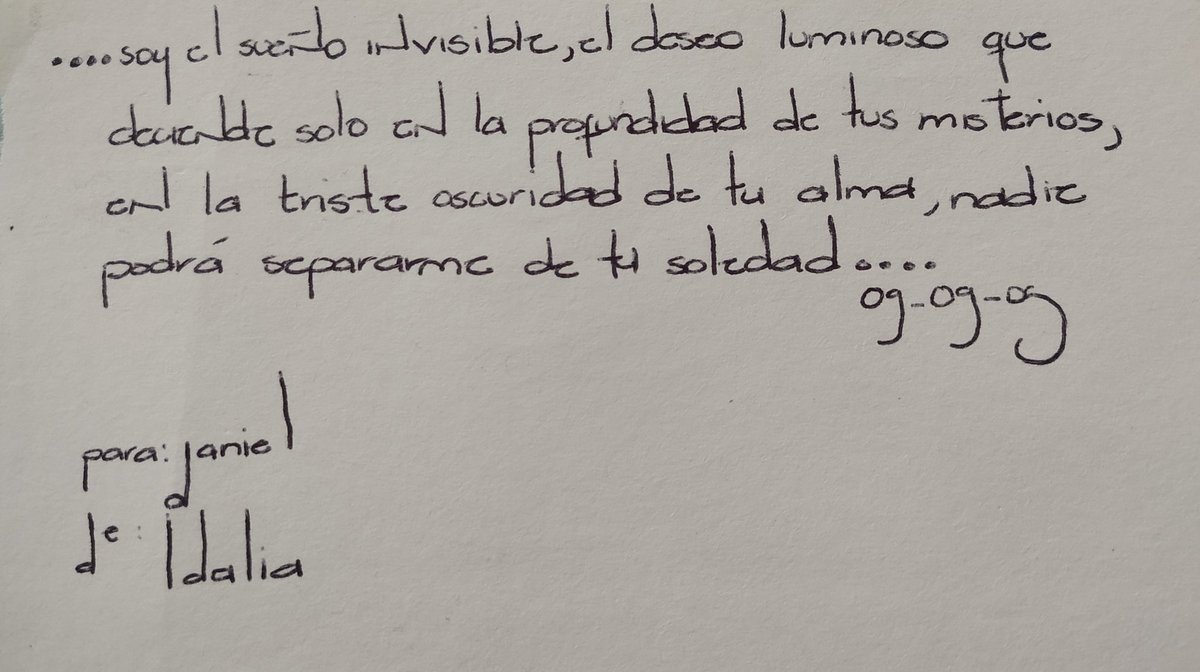 ....soy el sueño invisible, el deseo luminoso que
deciende solo en la profundidad de tus misterios,
en la triste oscuridad de tu alma, nadie
podrá separarme de tu soledad....
09-09-09
para: daniel
de: Idalia